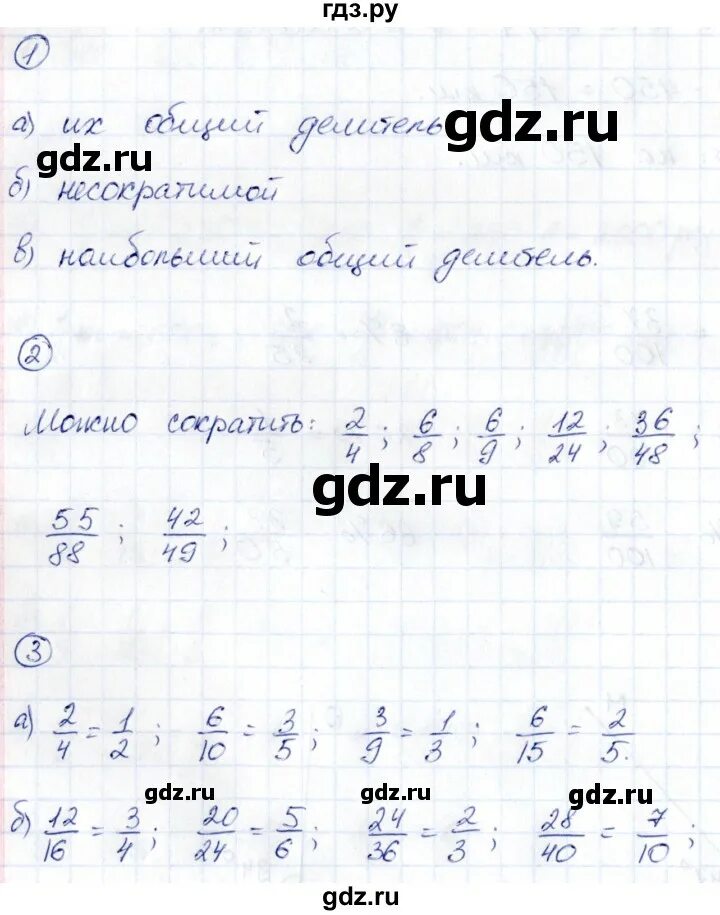 гдз.ру
1
а) их общий делитель
gdz.ru
gdz.ru
б) несократимой
gdz.ru
в) наибольший общий делитель.
2
Можно сократить: 2/4; 6/8; 6/9; 12/24; 36/48;
gdz.ru
55/88; 42/49;
3
а) 2/4 = 1/2; 6/10 = 3/5; 3/9 = 1/3; 6/15 = 2/5.
gdz.ru gdz.ru gdz.ru
б) 12/16 = 3/4; 20/24 = 5/6; 24/36 = 2/3; 28/40 = 7/10;
gdz.ru